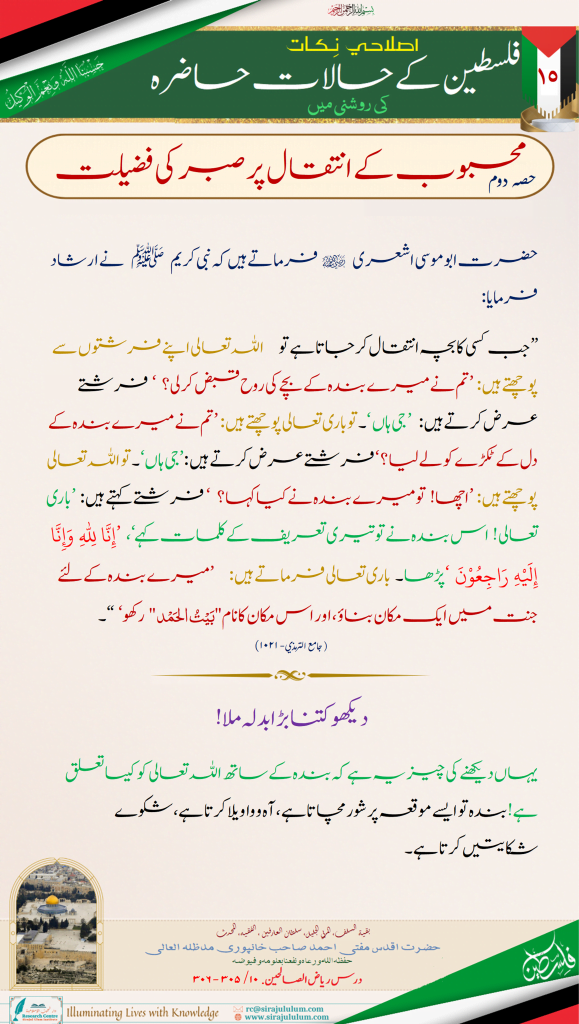 بسم الله الرحمن الرحيم
اصلاحي نِکات
فلسطین کے حالات حاضرہ
کی روشنی میں
۱۵
حَسْبُنَا اللّٰهُ وَنِعْمَ الْوَكِيْل
محبوب کے انتقال پر صبر کی فضیلت
حصہ دوم
حضرت ابو موسی اشعری رضی اللہ عنہ فرماتے ہیں کہ نبی کریم ﷺ نے ارشاد
فرمایا:
”جب کسی کا بچہ انتقال کر جاتا ہے تو اللہ تعالی اپنے فرشتوں سے
پوچھتے ہیں: ’تم نے میرے بندہ کے بچے کی روح قبض کر لی؟ ‘ فرشتے
عرض کرتے ہیں: ’جی ہاں‘۔ تو باری تعالی پوچھتے ہیں: ’تم نے میرے بندہ کے
دل کے ٹکڑے کو لے لیا؟‘ فرشتے عرض کرتے ہیں: ’جی ہاں‘۔ تو اللہ تعالی
پوچھتے ہیں: ’اچھا! تو میرے بندہ نے کیا کہا؟ ‘ فرشتے کہتے ہیں: ’باری
تعالی! اس بندہ نے تو تیری تعریف کے کلمات کہے‘، ’إِنَّا لِلّٰهِ وَإِنَّا
إِلَيْهِ رَاجِعُوْنَ ‘پڑھا۔ باری تعالی فرماتے ہیں: ’میرے بندہ کے لئے
جنت میں ایک مکان بناؤ، اور اس مکان کا نام "بَيْتُ الحَمْد" رکھو‘ “۔
(جامع الترمذي - ۱۰۲۱)
دیکھو کتنا بڑا بدلہ ملا!
یہاں دیکھنے کی چیز یہ ہے کہ بندہ کے ساتھ اللہ تعالی کو کیسا تعلق
ہے! بندہ تو ایسے موقعہ پر شور مچاتا ہے، آہ و واویلا کرتا ہے، شکوے
شکایتیں کرتا ہے۔
حضرت اقدس مفتی احمد صاحب خانپوری مدظلہ العالی
حفظہ اللہ ورعاہ ونفعنا بعلومہ وفیوضہ
درس ریاض الصالحین. ۱۰/ ۳۰۵-۳۰۶
فلسطین
Research Centre
Illuminating Lives with Knowledge
rc@sirajululum.com
www.sirajululum.com